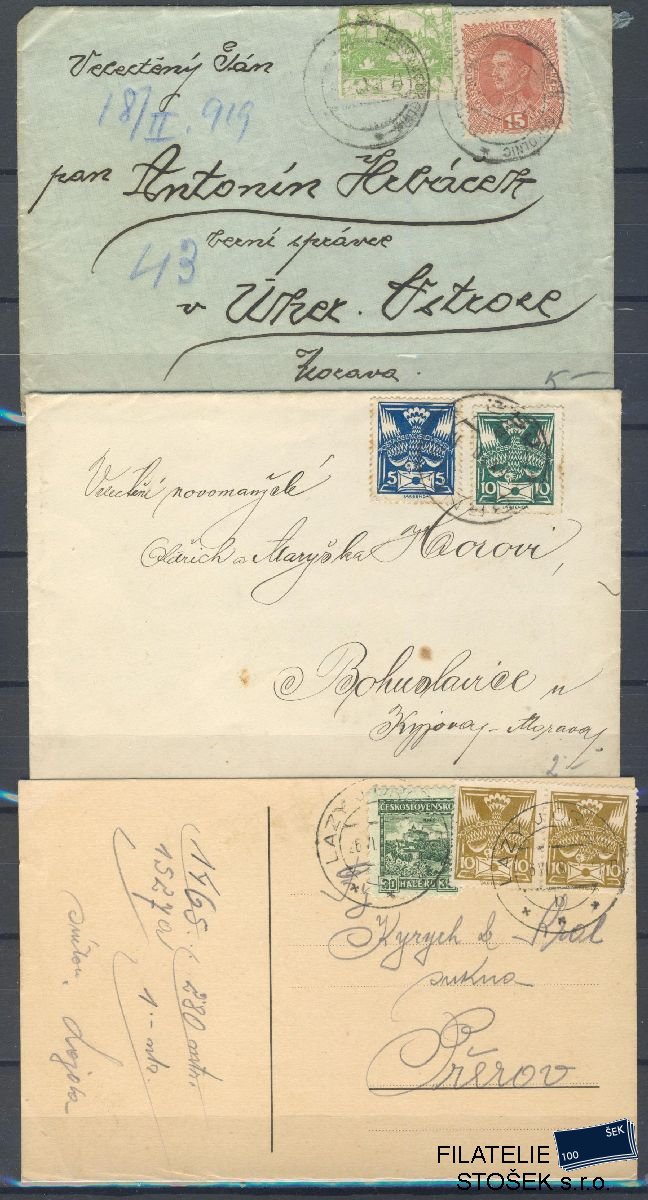 Velectěný Pán
18/II. 919
pan Antonín Hrbáček
43
berní správce
v Uher. Ostroze
Morava.
15
5-
5 5
10 10
Velectění novomanželé
Oldřich a Maryška Horovi,
Bohuslavice u
Kyjova, Morava,
2
ČESKOSLOVENSKO
30 HALÉŘŮ
10 10
10 10
LAZY
LAZY
Kyrych & Král
sukna
Přerov
1765
1527a
FILATELIE
STOŠEK s r.o.
100
ŠEK